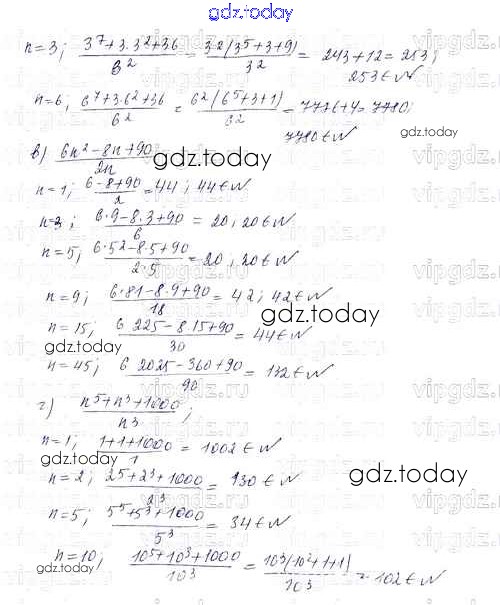 gdz.today
n=3; (3^7+3·3^2+36)/3^2 = 3^2(3^5+3+9)/3^2 = 243+12=253;
253∈N
n=6; (6^7+3·6^2+36)/6^2 = 6^2(6^5+3+1)/6^2 = 7776+4=7780;
7780∈N
gdz.today
в) (6n^2-8n+90)/2n
gdz.today
n=1; (6-8+90)/2 = 44; 44∈N
n=3; (6·9-8·3+90)/6 = 20, 20∈N
n=5; (6·5^2-8·5+90)/2·5 = 20, 20∈N
n=9; (6·81-8·9+90)/18 = 42; 42∈N
gdz.today
n=15, (6 225-8·15+90)/30 = 44∈N
gdz.today
n=45; (6 2025-360+90)/90 = 132∈N
г) (n^5+n^3+1000)/n^3;
n=1; (1+1+1000)/1 = 1002∈N
gdz.today
n=2; (2^5+2^3+1000)/2^3 = 130∈N
gdz.today
n=5; (5^5+5^3+1000)/5^3 = 34∈N
n=10; (10^5+10^3+1000)/10^3 = 10^3(10^2+1+1)/10^3 = 102∈N
gdz.today